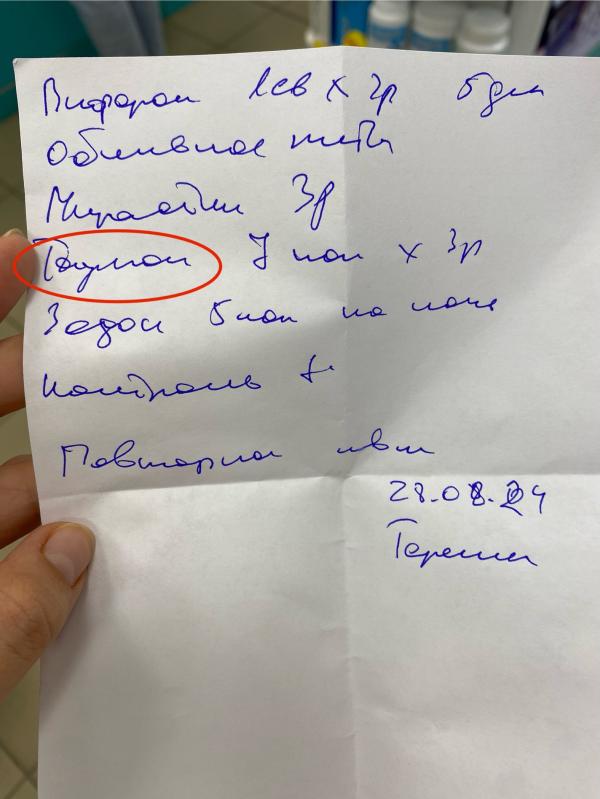 Виферон 1св х 2р 5дн
Обильное питье
Мирамистин 3р
7 кап х 3р
Зодак 5кап на ночь
Контроль t°
Повторная явка
28.08.24